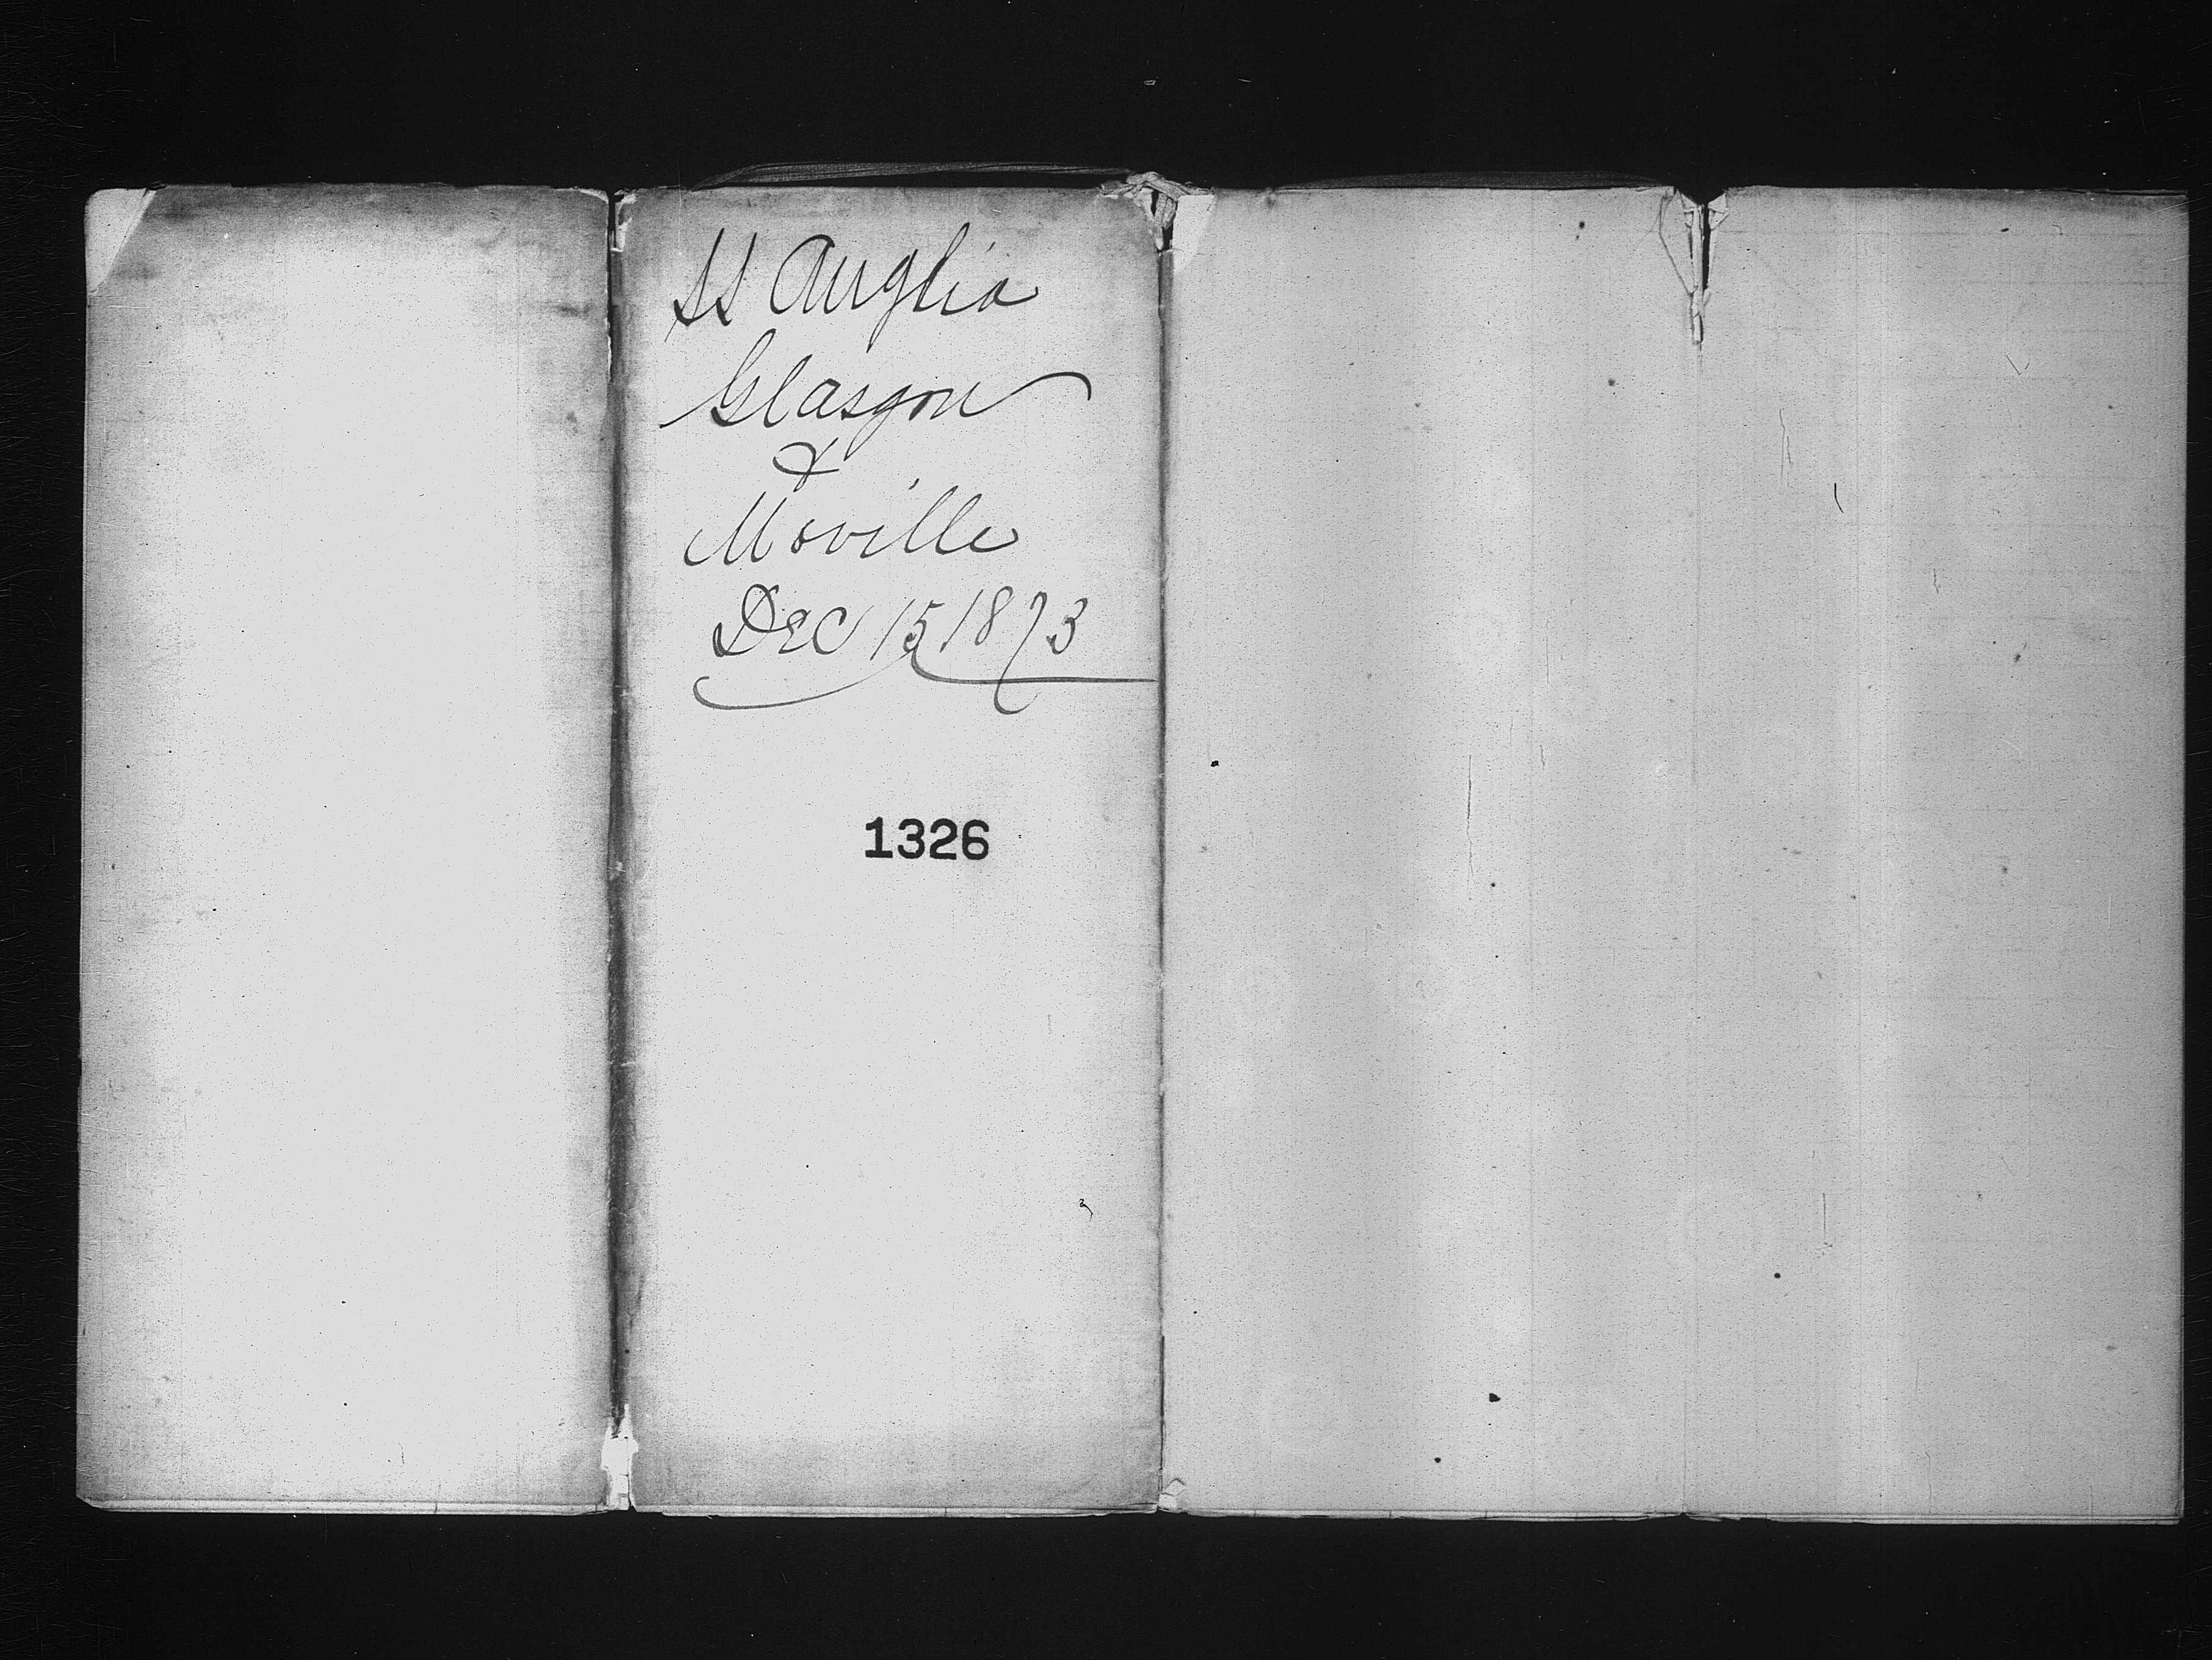 SS Anglia
Glasgow
&
Moville
Dec 15 1873
1326